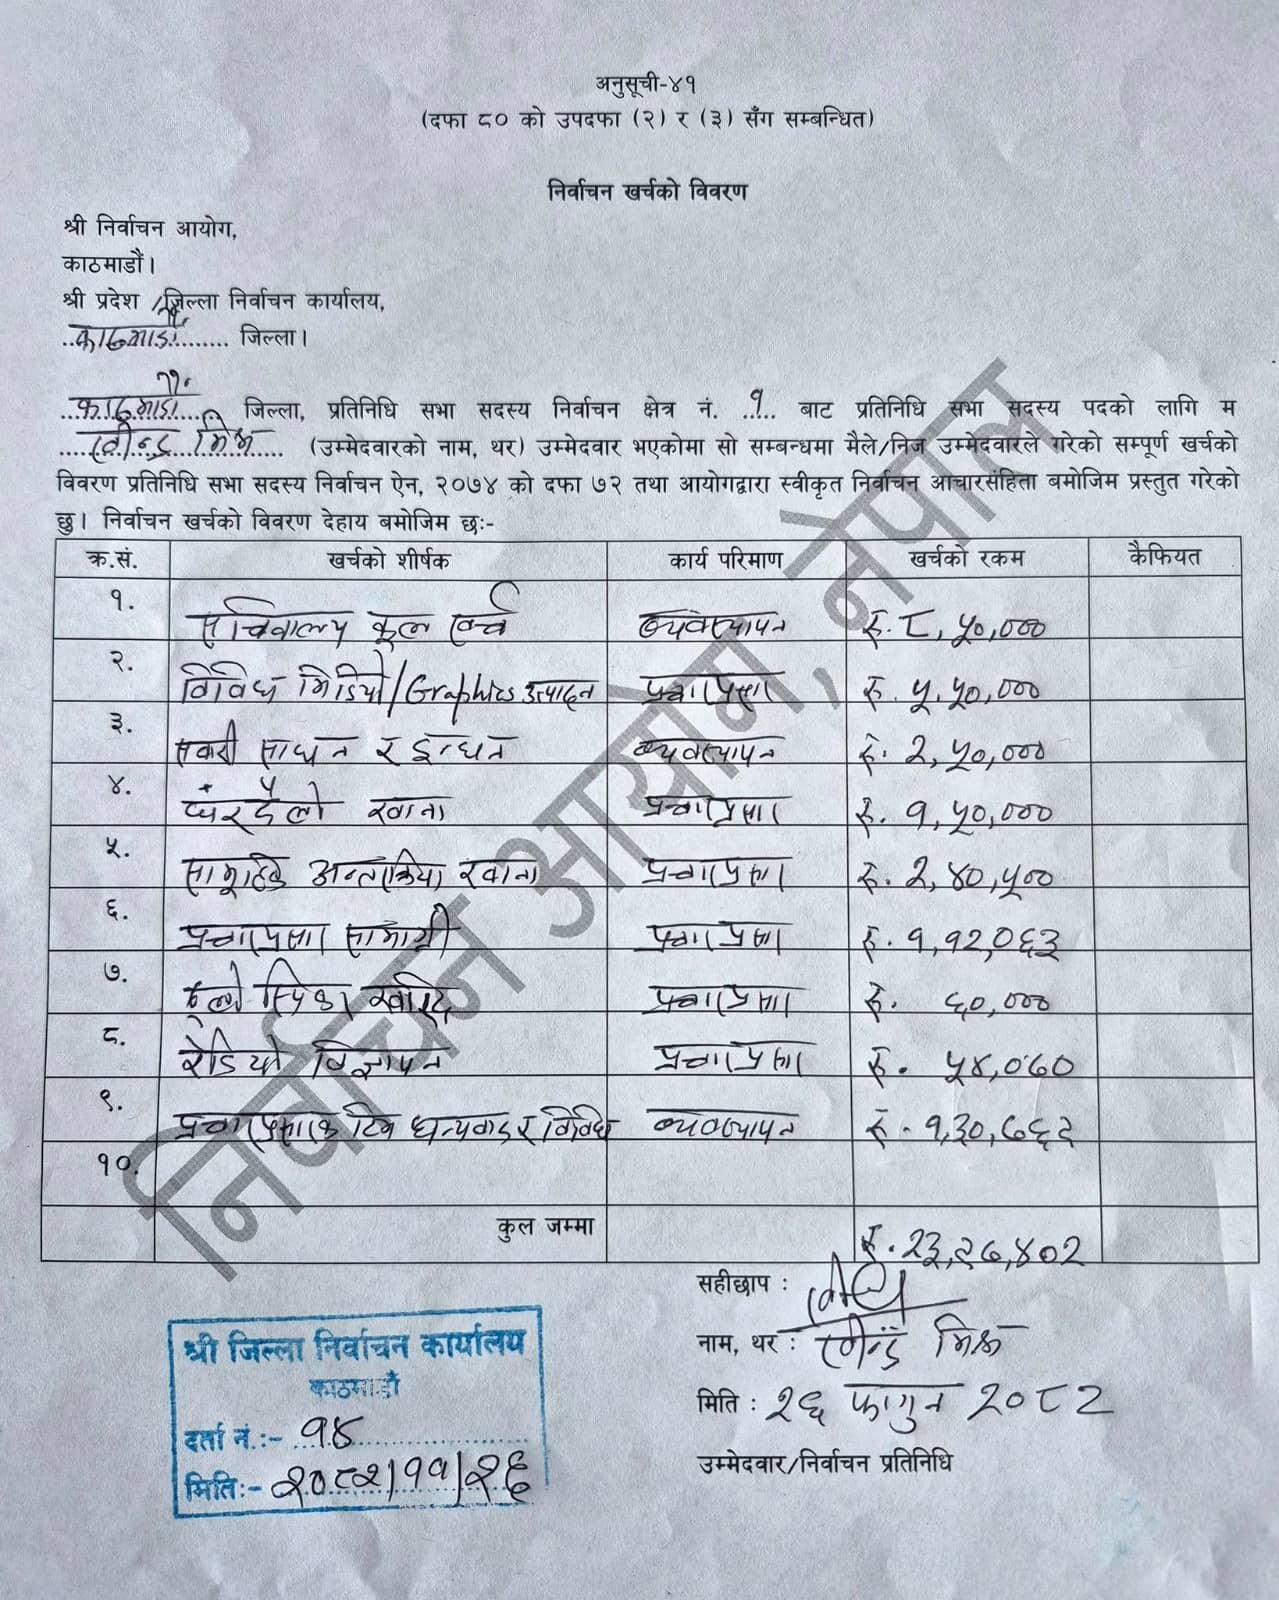 अनुसूची-४१
(दफा ८० को उपदफा (२) र (३) सँग सम्बन्धित)
निर्वाचन खर्चको विवरण
श्री निर्वाचन आयोग,
काठमाडौं।
श्री प्रदेश /जिल्ला निर्वाचन कार्यालय,
काठमाडौं जिल्ला।
काठमाडौं जिल्ला, प्रतिनिधि सभा सदस्य निर्वाचन क्षेत्र नं. १ बाट प्रतिनिधि सभा सदस्य पदको लागि म
रवीन्द्र मिश्र (उम्मेदवारको नाम, थर) उम्मेदवार भएकोमा सो सम्बन्धमा मैले/निज उम्मेदवारले गरेको सम्पूर्ण खर्चको
विवरण प्रतिनिधि सभा सदस्य निर्वाचन ऐन, २०७४ को दफा ७२ तथा आयोगद्वारा स्वीकृत निर्वाचन आचारसंहिता बमोजिम प्रस्तुत गरेको
छु। निर्वाचन खर्चको विवरण देहाय बमोजिम छः-
क्र.सं. खर्चको शीर्षक कार्य परिमाण खर्चको रकम कैफियत
१. सचिवालय कूल खर्च व्यवस्थापन रु. ८,५०,०००
२. विविध भिडियो/Graphics उत्पादन प्रचारप्रसार रु. ५,५०,०००
३. सवारी साधन र इन्धन व्यवस्थापन रु. २,५०,०००
४. घरदैलो खाना प्रचारप्रसार रु. १,५०,०००
५. सामूहिक अन्तरक्रिया खाना प्रचारप्रसार रु. २,४०,५००
६. प्रचारप्रसार सामाग्री प्रचारप्रसार रु. १,१२,०६३
७. ठूलो स्पिकर खरिद प्रचारप्रसार रु. ६०,०००
८. रेडियो विज्ञापन प्रचारप्रसार रु. ५४,०७०
९. प्रचारप्रसारक टिम धन्यवाद र विविध व्यवस्थापन रु. १,३०,७६९
१०.
कुल जम्मा रु. २३,९७,४०२
सहीछाप :
नाम, थर : रवीन्द्र मिश्र
मिति : २६ फागुन २०८२
उम्मेदवार/निर्वाचन प्रतिनिधि
श्री जिल्ला निर्वाचन कार्यालय
काठमाडौं
दर्ता नं.:- १४
मितिः- २०८२/११/२६
निर्वाचन आयोग, नेपाल